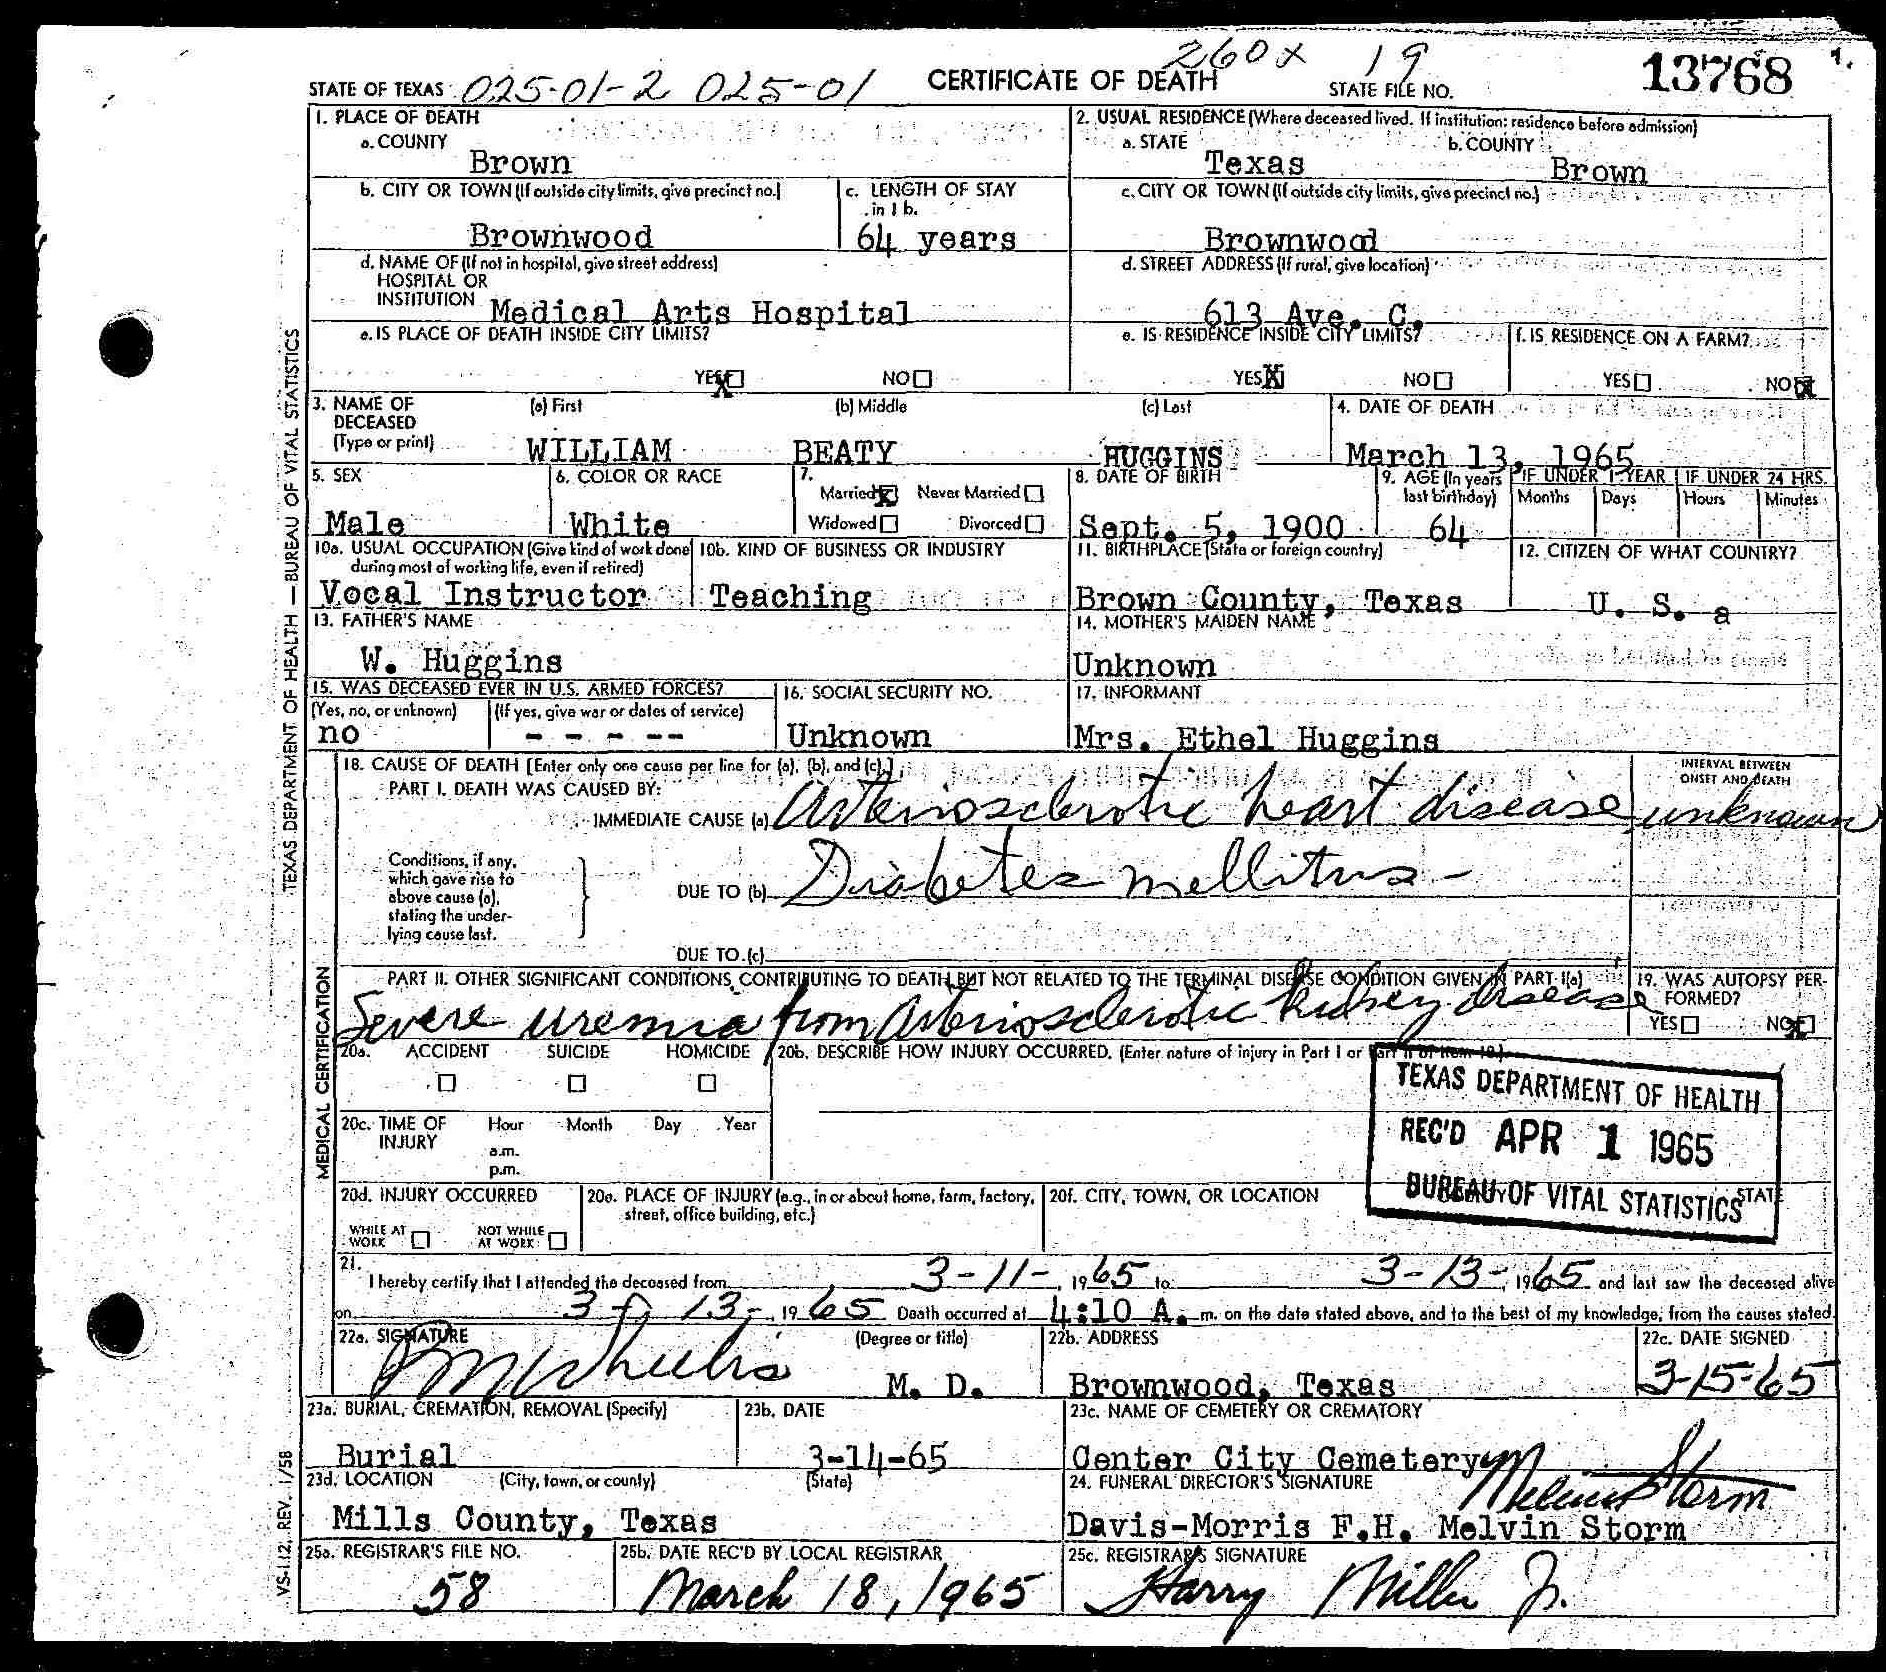 260x 19
STATE OF TEXAS 025-01-2 025-01 CERTIFICATE OF DEATH STATE FILE NO. 13768
1. PLACE OF DEATH
a. COUNTY
Brown
2. USUAL RESIDENCE (Where deceased lived. If institution: residence before admission)
a. STATE b. COUNTY
Texas Brown
b. CITY OR TOWN (If outside city limits, give precinct no.)
Brownwood
c. LENGTH OF STAY
in 1 b.
64 years
c. CITY OR TOWN (If outside city limits, give precinct no.)
Brownwood
d. NAME OF (If not in hospital, give street address)
HOSPITAL OR
INSTITUTION Medical Arts Hospital
d. STREET ADDRESS (If rural, give location)
613 Ave. C.
e. IS PLACE OF DEATH INSIDE CITY LIMITS?
YES X NO
e. IS RESIDENCE INSIDE CITY LIMITS?
YES X NO
f. IS RESIDENCE ON A FARM?
YES NO X
3. NAME OF
DECEASED
(Type or print)
(a) First (b) Middle (c) Last
WILLIAM BEATY HUGGINS
4. DATE OF DEATH
March 13, 1965
5. SEX
Male
6. COLOR OR RACE
White
7.
Married X Never Married
Widowed Divorced
8. DATE OF BIRTH
Sept. 5, 1900
9. AGE (In years
last birthday)
64
IF UNDER 1 YEAR IF UNDER 24 HRS.
Months Days Hours Minutes
10a. USUAL OCCUPATION (Give kind of work done
during most of working life, even if retired)
Vocal Instructor
10b. KIND OF BUSINESS OR INDUSTRY
Teaching
11. BIRTHPLACE (State or foreign country)
Brown County, Texas
12. CITIZEN OF WHAT COUNTRY?
U. S. a
13. FATHER'S NAME
W. Huggins
14. MOTHER'S MAIDEN NAME
Unknown
15. WAS DECEASED EVER IN U.S. ARMED FORCES?
(Yes, no, or unknown) (If yes, give war or dates of service)
no - - - --
16. SOCIAL SECURITY NO.
Unknown
17. INFORMANT
Mrs. Ethel Huggins
18. CAUSE OF DEATH [Enter only one cause per line for (a), (b), and (c).]
PART I. DEATH WAS CAUSED BY:
INTERVAL BETWEEN
ONSET AND DEATH
IMMEDIATE CAUSE (a) Arteriosclerotic heart disease unknown
Conditions, if any,
which gave rise to
above cause (a),
stating the under-
lying cause last.
DUE TO (b) Diabetes mellitus -
DUE TO (c)
PART II. OTHER SIGNIFICANT CONDITIONS CONTRIBUTING TO DEATH BUT NOT RELATED TO THE TERMINAL DISEASE CONDITION GIVEN IN PART I(a)
Severe uremia from arteriosclerotic kidney disease
19. WAS AUTOPSY PER-
FORMED?
YES NO X
20a. ACCIDENT SUICIDE HOMICIDE
20b. DESCRIBE HOW INJURY OCCURRED. (Enter nature of injury in Part I or Part II of Item 18.)
20c. TIME OF
INJURY
Hour Month Day Year
a.m.
p.m.
TEXAS DEPARTMENT OF HEALTH
REC'D APR 1 1965
BUREAU OF VITAL STATISTICS
20d. INJURY OCCURRED
WHILE AT
WORK
NOT WHILE
AT WORK
20e. PLACE OF INJURY (e.g., in or about home, farm, factory,
street, office building, etc.)
20f. CITY, TOWN, OR LOCATION STATE
21.
I hereby certify that I attended the deceased from 3-11-, 1965 to 3-13-, 1965 and last saw the deceased alive
on 3- 13-, 1965 Death occurred at 4:10 A. m. on the date stated above, and to the best of my knowledge, from the causes stated.
22a. SIGNATURE (Degree or title)
M. D.
22b. ADDRESS
Brownwood, Texas
22c. DATE SIGNED
3-15-65
23a. BURIAL, CREMATION, REMOVAL (Specify)
Burial
23b. DATE
3-14-65
23c. NAME OF CEMETERY OR CREMATORY
Center City Cemetery
23d. LOCATION (City, town, or county) (State)
Mills County, Texas
24. FUNERAL DIRECTOR'S SIGNATURE
Melvin Storm
Davis-Morris F.H. Melvin Storm
25a. REGISTRAR'S FILE NO.
58
25b. DATE REC'D BY LOCAL REGISTRAR
March 18, 1965
25c. REGISTRAR'S SIGNATURE
Harry Miller Jr.
TEXAS DEPARTMENT OF HEALTH — BUREAU OF VITAL STATISTICS
MEDICAL CERTIFICATION
VS-112, REV. 1/58